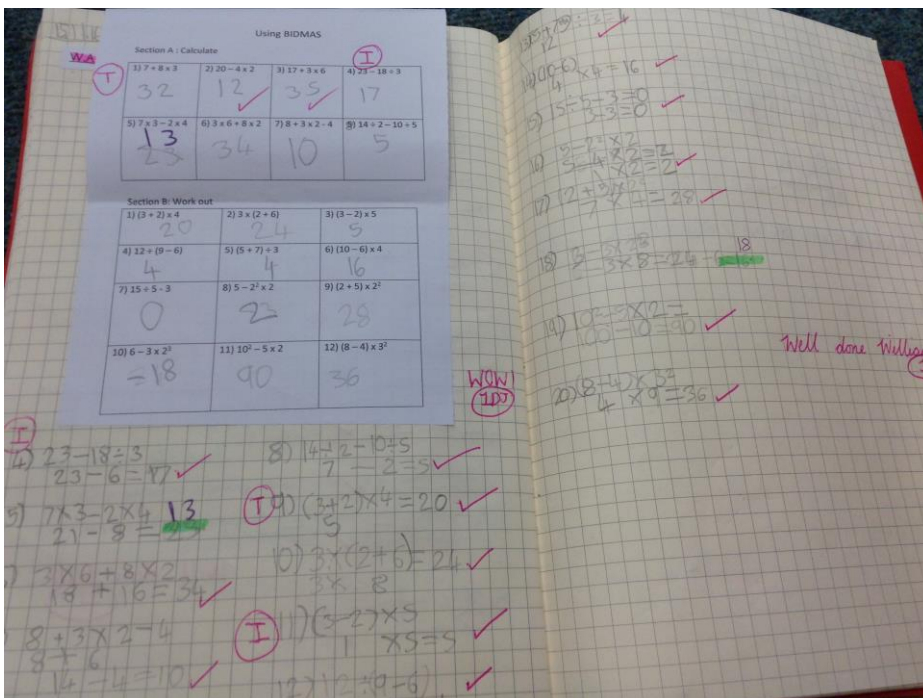 WA
Using BIDMAS
Section A : Calculate
T
I
1) 7 + 8 x 3
2) 20 – 4 x 2
3) 17 + 3 x 6
4) 23 – 18 ÷ 3
32
12
35
17
5) 7 x 3 – 2 x 4
6) 3 x 6 + 8 x 2
7) 8 + 3 x 2 - 4
8) 14 ÷ 2 – 10 ÷ 5
13
23
34
10
5
Section B: Work out
1) (3 + 2) x 4
2) 3 x (2 + 6)
3) (3 – 2) x 5
20
24
5
4) 12 ÷ (9 – 6)
5) (5 + 7) ÷ 3
6) (10 – 6) x 4
4
4
16
7) 15 ÷ 5 - 3
8) 5 – 2² x 2
9) (2 + 5) x 2²
0
28
10) 6 – 3 x 2³
11) 10² – 5 x 2
12) (8 – 4) x 3²
-18
90
36
WOW!
I
4) 23 – 18 ÷ 3
23 – 6 = 17
5) 7 x 3 – 2 x 4 13
21 – 8 = 23
3 x 6 + 8 x 2
18 + 16 = 34
8 + 3 x 2 – 4
8 + 6
14 – 4 = 10
8) 14 ÷ 2 – 10 ÷ 5
7 – 2 = 5
T
9) (3+2) x 4 = 20
5
10) 3 x (2 + 6) = 24
3 x 8
I
11) (3–2) x 5
1 x 5 = 5
12
4 x 4 = 16
15 ÷ 5 – 3 = 0
3 – 3 = 0
17)
7 x 4 = 28
18)
3 x 8 = 24
18
19) 10² – 5 x 2 =
100 – 10 = 90
20) (8–4) x 3²
4 x 9 = 36
Well done